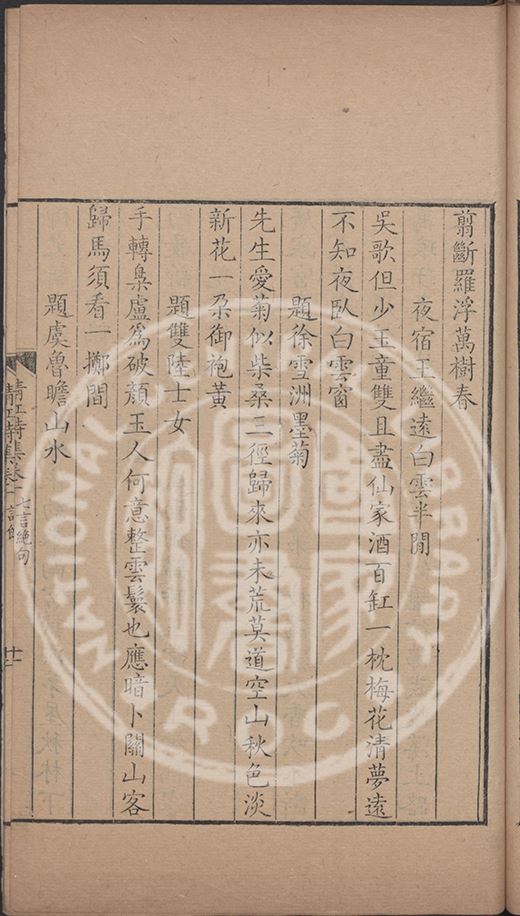 翦斷羅浮萬樹春
夜宿王繼遠白雲半間
吳歌但少玉童雙且盡仙家酒百缸一枕梅花清夢遠
不知夜臥白雲窗
題徐雪洲墨菊
先生愛菊似柴桑三徑歸來亦未荒莫道空山秋色淡
新花一朶御袍黃
題雙陸士女
手轉梟盧爲破顏玉人何意整雲鬟也應暗卜關山客
歸馬須看一擲間
題虞魯瞻山水
七言絕句
十一
NATIONAL
LIBRARY
R.O.C.